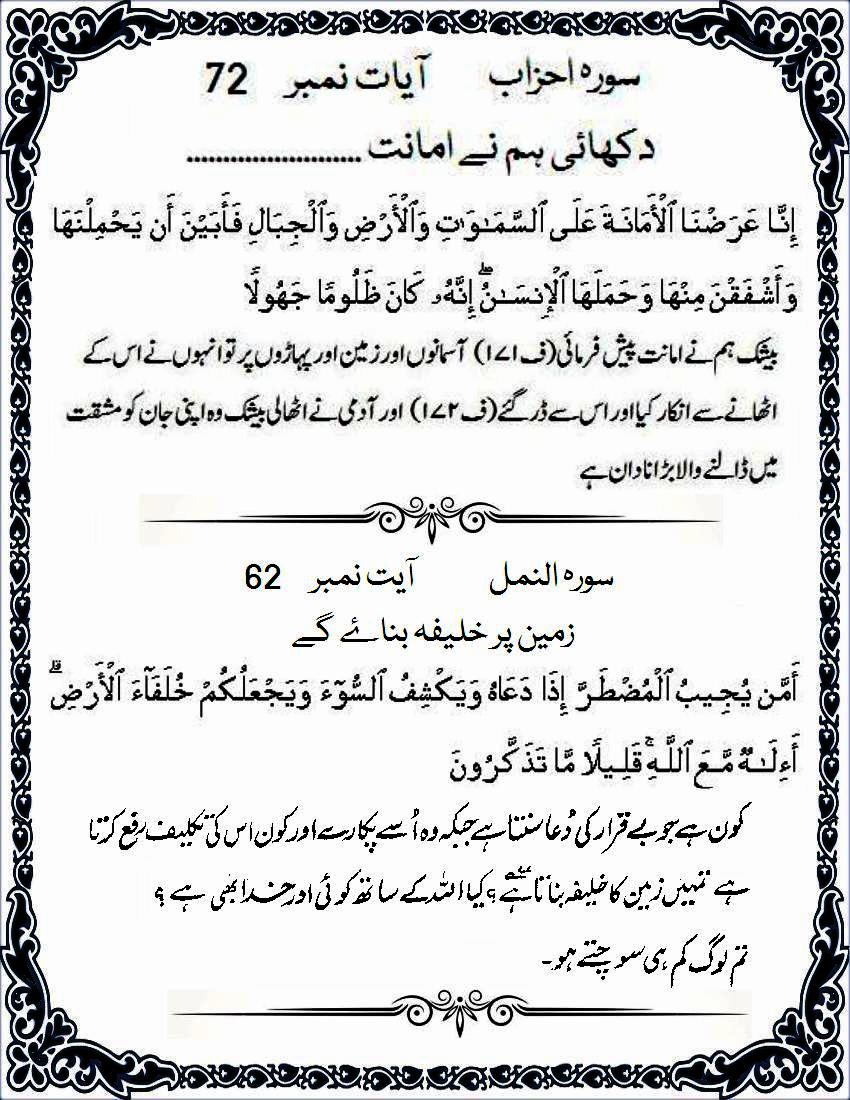 سورہ احزاب آیات نمبر 72
دکھائی ہم نے امانت ........................
إِنَّا عَرَضْنَا ٱلْأَمَانَةَ عَلَى ٱلسَّمَـٰوَٰتِ وَٱلْأَرْضِ وَٱلْجِبَالِ فَأَبَيْنَ أَن يَحْمِلْنَهَا
وَأَشْفَقْنَ مِنْهَا وَحَمَلَهَا ٱلْإِنسَـٰنُ ۖ إِنَّهُۥ كَانَ ظَلُومًا جَهُولًا
بیشک ہم نے امانت پیش فرمائی (ف ۱۷۱) آسمانوں اور زمین اور پہاڑوں پر تو انہوں نے اس کے
اٹھانے سے انکار کیا اور اس سے ڈر گئے (ف ۱۷۲) اور آدمی نے اٹھالی بیشک وہ اپنی جان کو مشقت
میں ڈالنے والا بڑا نادان ہے
سورہ النمل آیت نمبر 62
زمین پر خلیفہ بنائے گے
أَمَّن يُجِيبُ ٱلْمُضْطَرَّ إِذَا دَعَاهُ وَيَكْشِفُ ٱلسُّوٓءَ وَيَجْعَلُكُمْ خُلَفَآءَ ٱلْأَرْضِ ۗ
أَءِلَـٰهٌ مَّعَ ٱللَّهِ ۚ قَلِيلًا مَّا تَذَكَّرُونَ
کون ہے جو بے قرار کی دُعا سنتا ہے جبکہ وہ اُسے پکارے اور کون اس کی تکلیف رفع کرتا
ہے تمہیں زمین کا خلیفہ بناتا ہے؟ کیا اللہ کے ساتھ کوئی اور خدا بھی ہے ؟
تم لوگ کم ہی سوچتے ہو۔